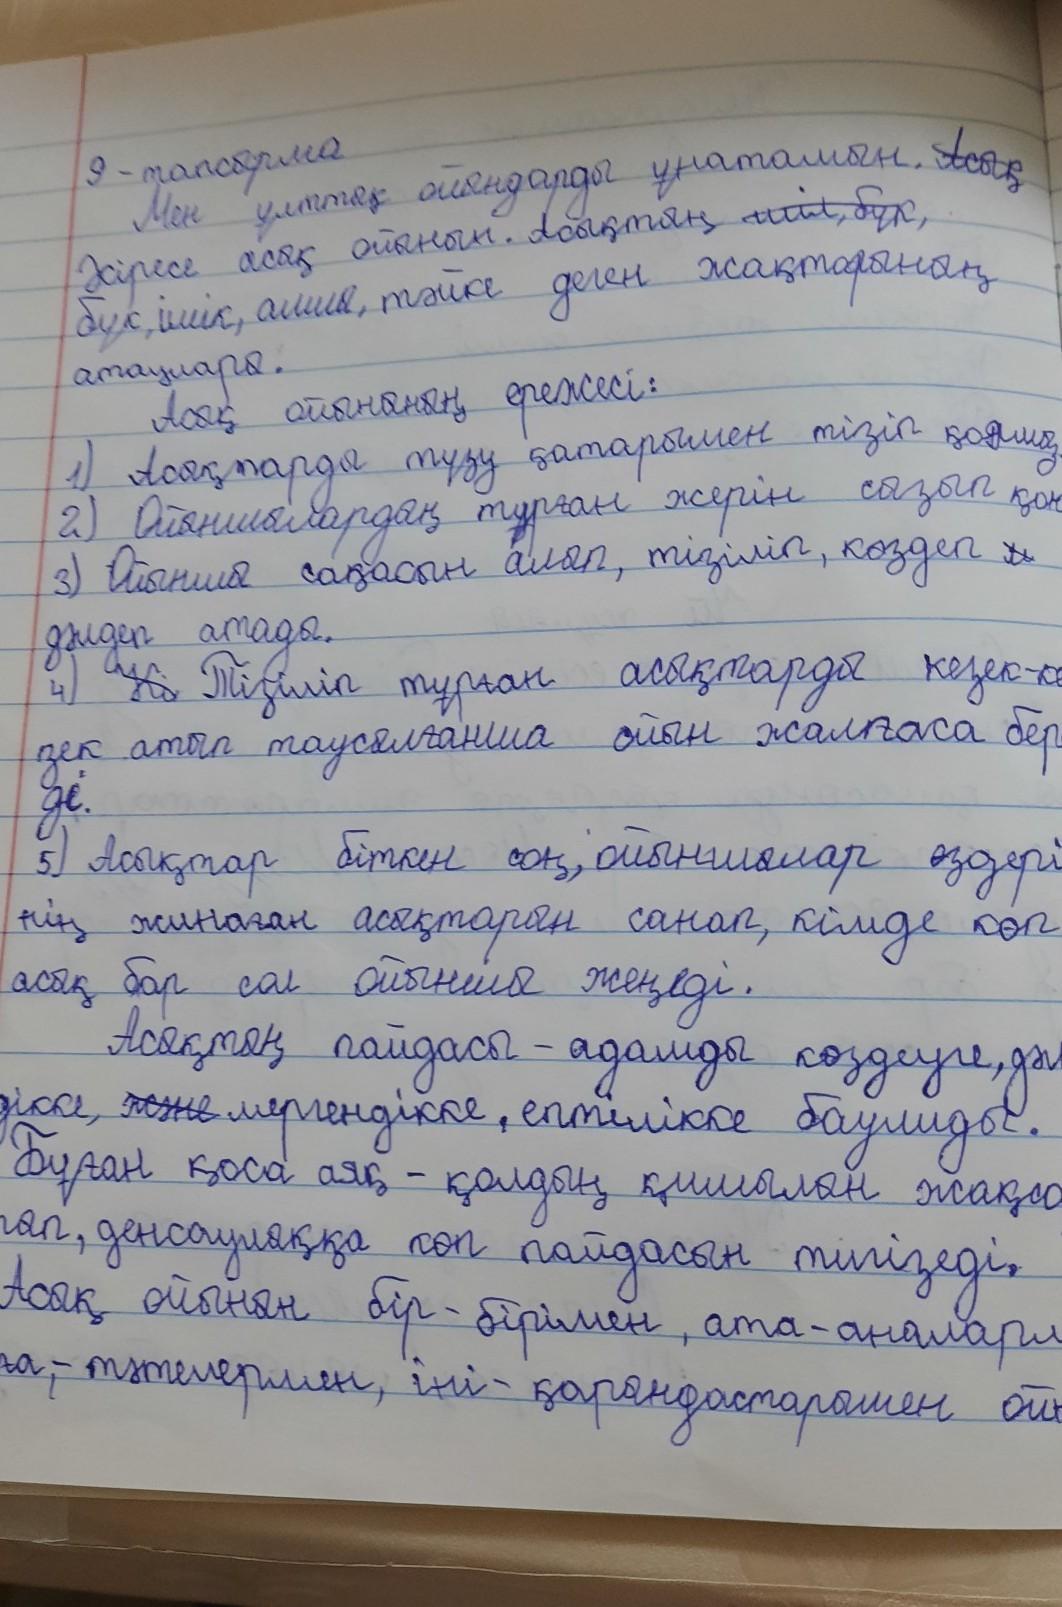 9-тапсырма
Мен ұлттық ойындарды ұнатамын. Асық
Әсіресе асық ойынын. Асықтың шік, бүк,
бүк, шік, алшы, тәйке деген жақтарының
атаулары.
Асық ойынының ережесі:
1) Асықтарды түзу қатарымен тізіп қоямыз.
2) Ойыншылардың тұрған жерін сызып қоя
3) Ойыншы сақасын алып, тізіліп, көздеп
дәлдеп атады.
4) Тізіліп тұрған асықтарды кезек-ке
зек атып таусылғанша ойын жалғаса бер
ді.
5) Асықтар біткен соң, ойыншылар өздері
нің жинаған асықтарын санап, кімде көп
асық бар сол ойыншы жеңеді.
Асықтың пайдасы - адамды көздеуге, дәл
дікке, және мергендікке, ептілікке баулиды.
Бұған қоса аяқ-қолдың қимылын жақса
тып, денсаулыққа көп пайдасын тигізеді.
Асық ойынын бір-бірімен, ата-аналарм
ға,-тәтелермен, іні-қарындастарымен ойн